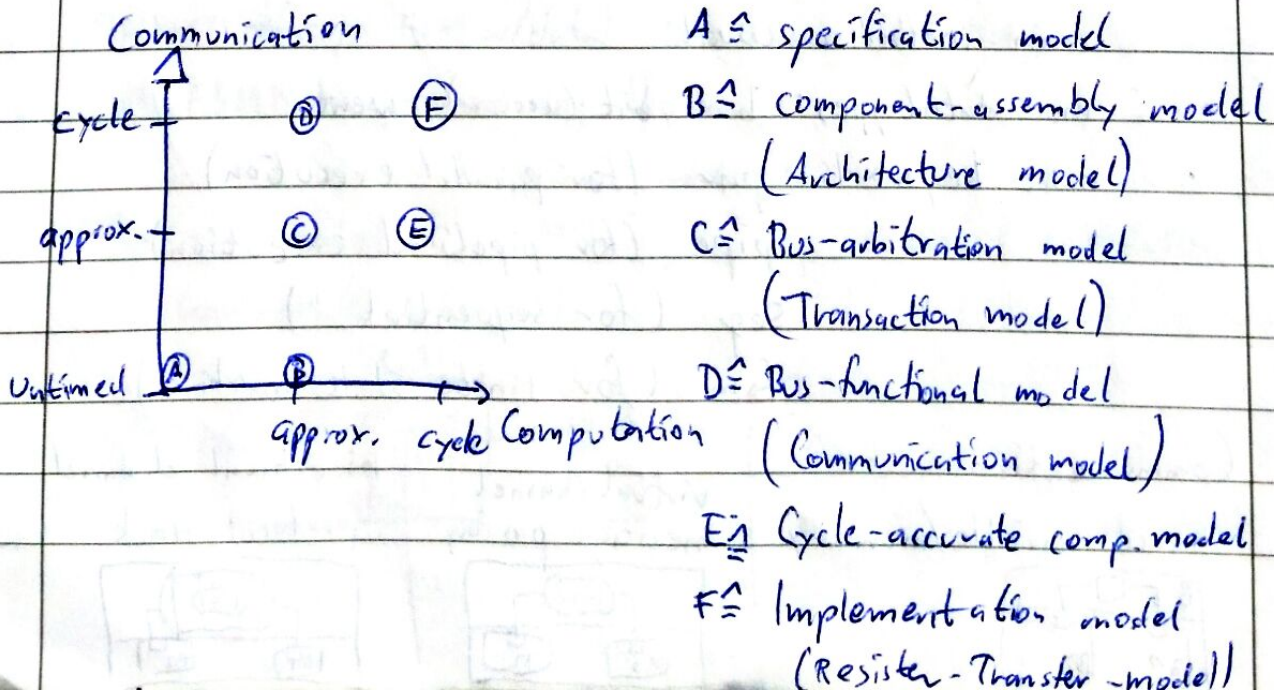 Communication
cycle
D F
approx.
C E
Untimed A B
approx. cycle Computation
A ≙ specification model
B ≙ component-assembly model
(Architecture model)
C ≙ Bus-arbitration model
(Transaction model)
D ≙ Bus-functional model
(Communication model)
E ≙ Cycle-accurate comp. model
F ≙ Implementation model
(Resister-Transfer-model)